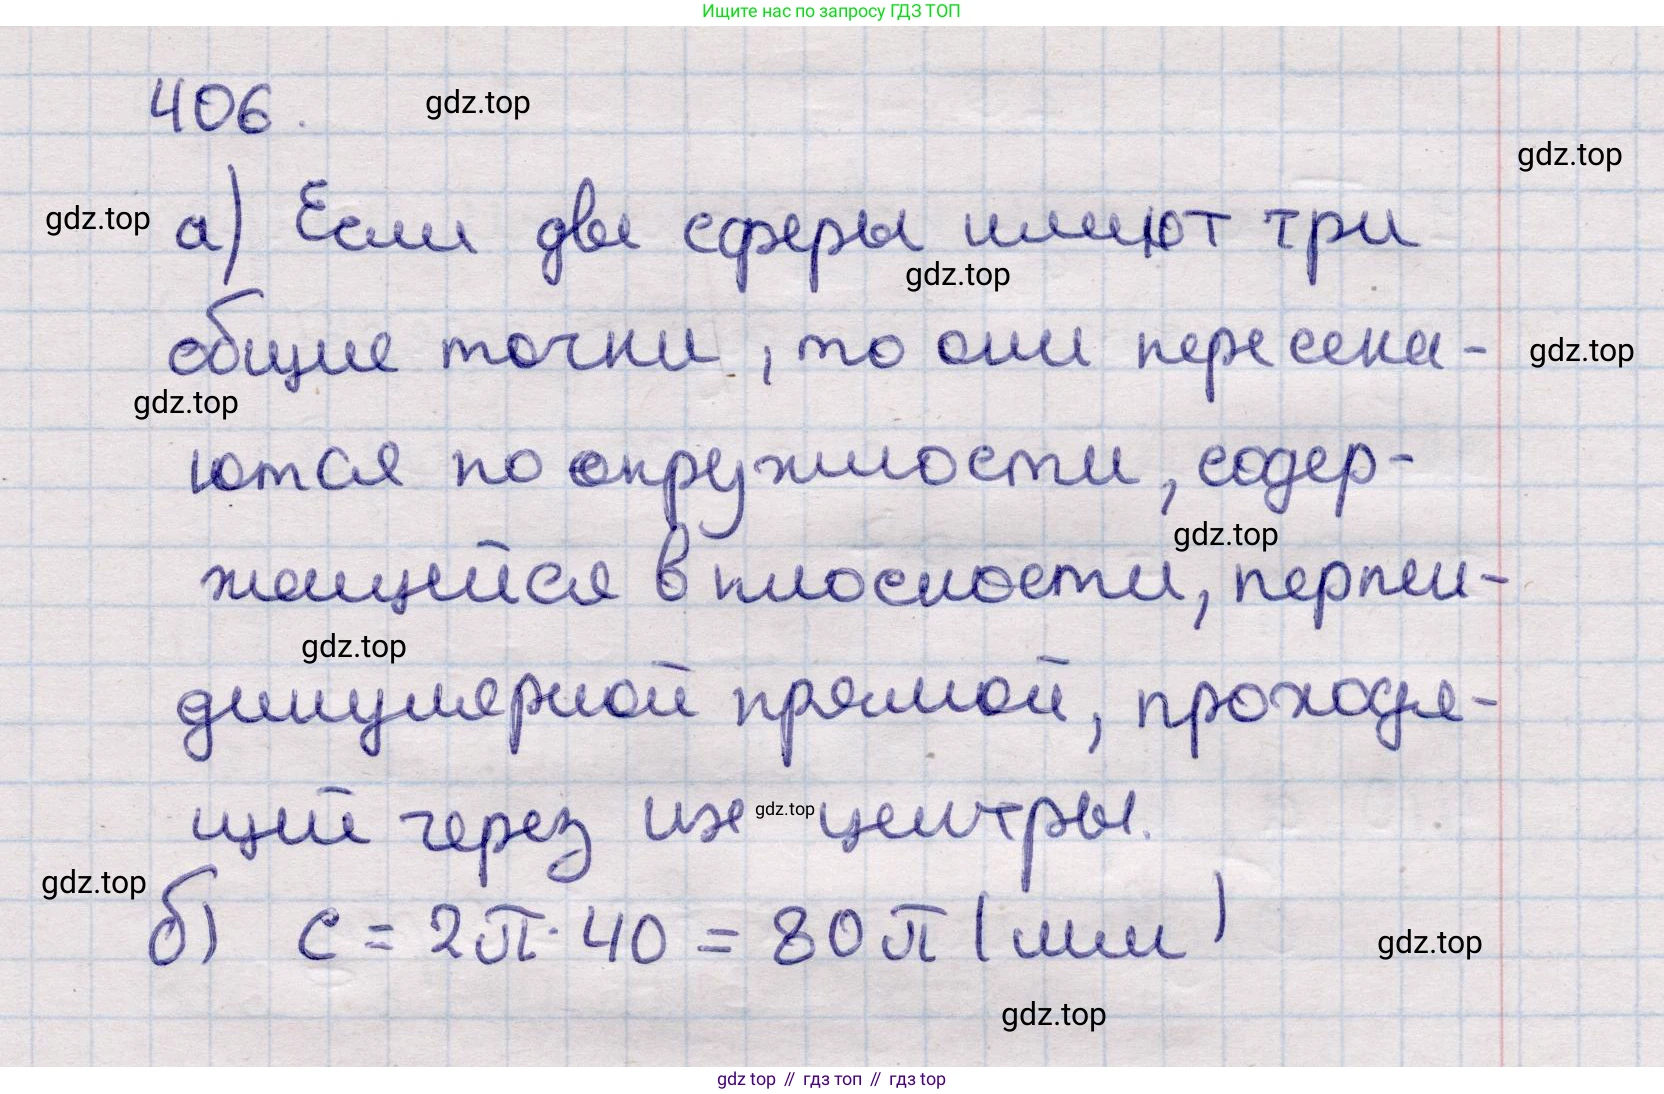 Ищите нас по запросу ГДЗ ТОП
406.
gdz.top
gdz.top
gdz.top
а) Если две сферы имеют три
gdz.top
общие точки, то они пересека-
gdz.top
gdz.top
ются по окружности, содер-
gdz.top
жащейся в плоскости, перпен-
gdz.top
дикулярной прямой, проходя-
щий через их центры.
gdz.top
gdz.top
б) C = 2π · 40 = 80π (мм)
gdz.top
gdz.top
gdz top // гдз топ // gdz top